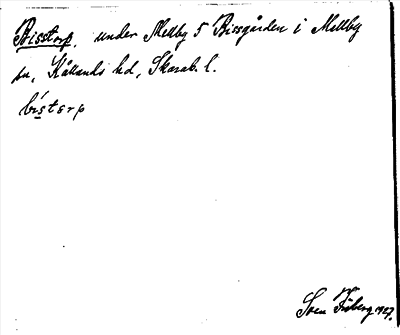 Bisstorp. under Mellby 5 Bissgården i Mellby
sn, Kållands hd, Skarab. l.
bístɵrp
Sven Fåberg 1927.